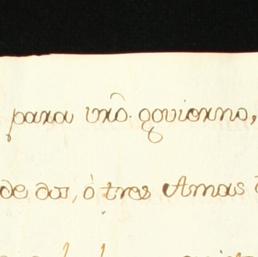 para vrô. govierno,
de dos, ò tres Amas